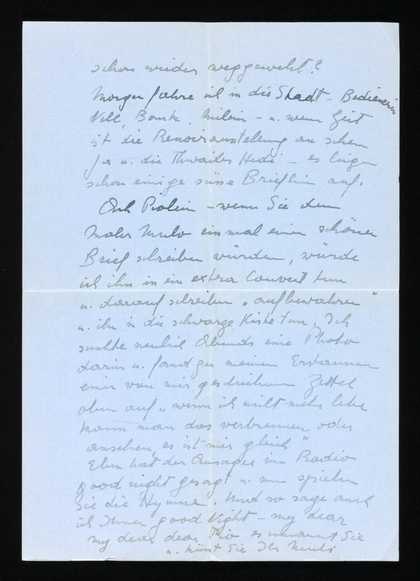 schon wieder weggeweht?
Morgen fahre ich in die Stadt - Bedienerin
Nell, Bank, - u. wenn Zeit
ist die Renoirausstellung an sehen
ja u. die Thwaites Hedi - es liegen
schon einige süsse Brieflein auf.
Och - wenn Sie dem
Maler Mulo einmal einen schönen
Brief schreiben würden, würde
ich ihn in ein extra Couvert tun
u. darauf schreiben „aufbewahren"
u. ihn in die schwarze Kiste tun. Ich
suchte neulich Abends eine Photo
darin u. fand zu meinem Erstaunen
einen von mir geschriebenen Zettel
oben auf „wenn ich nicht mehr lebe
kann man das verbrennen oder
ansehen, es ist mir gleich"
Eben hat der Ansager im Radio
good night gesagt u. nun spielen
Sie die Hymne. Und so sage auch
ich Ihnen good Night - my dear
my dear, dear es umarmt Sie
u. küsst Sie Ihr Mulo